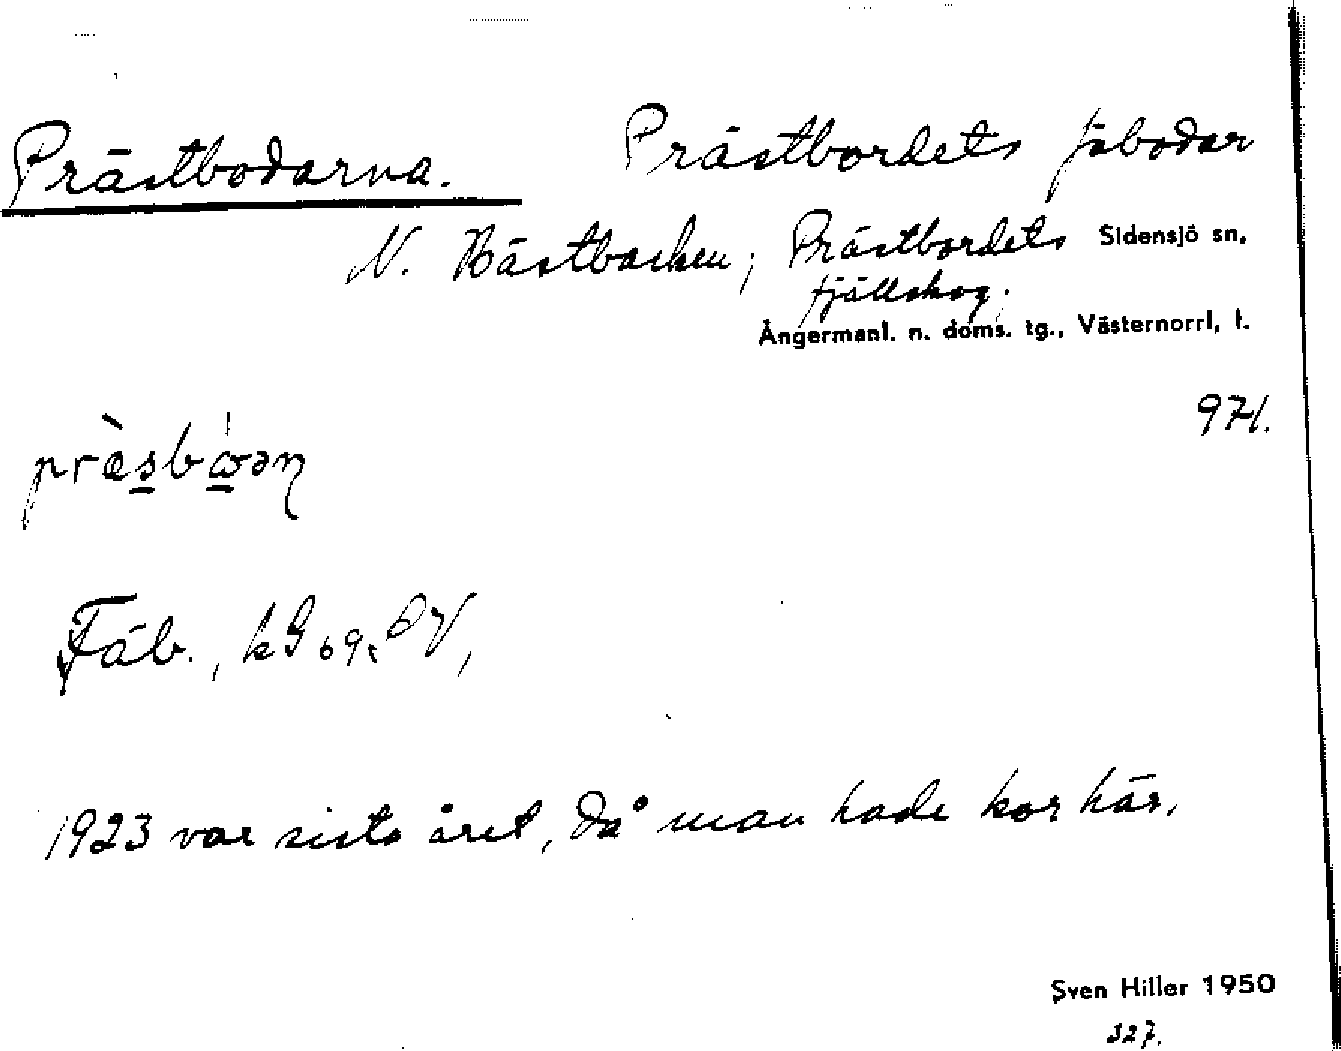 Prästbodarna. Prästbordets fäbodar
N. Bästbacken; Prästbordets Sidensjö sn,
fjällskog.
Ångermanl. n. doms. tg., Västernorrl. l.
971.
Fäb.,
1923 var sista året, då man hade kor här.
Sven Hiller 1950
327.